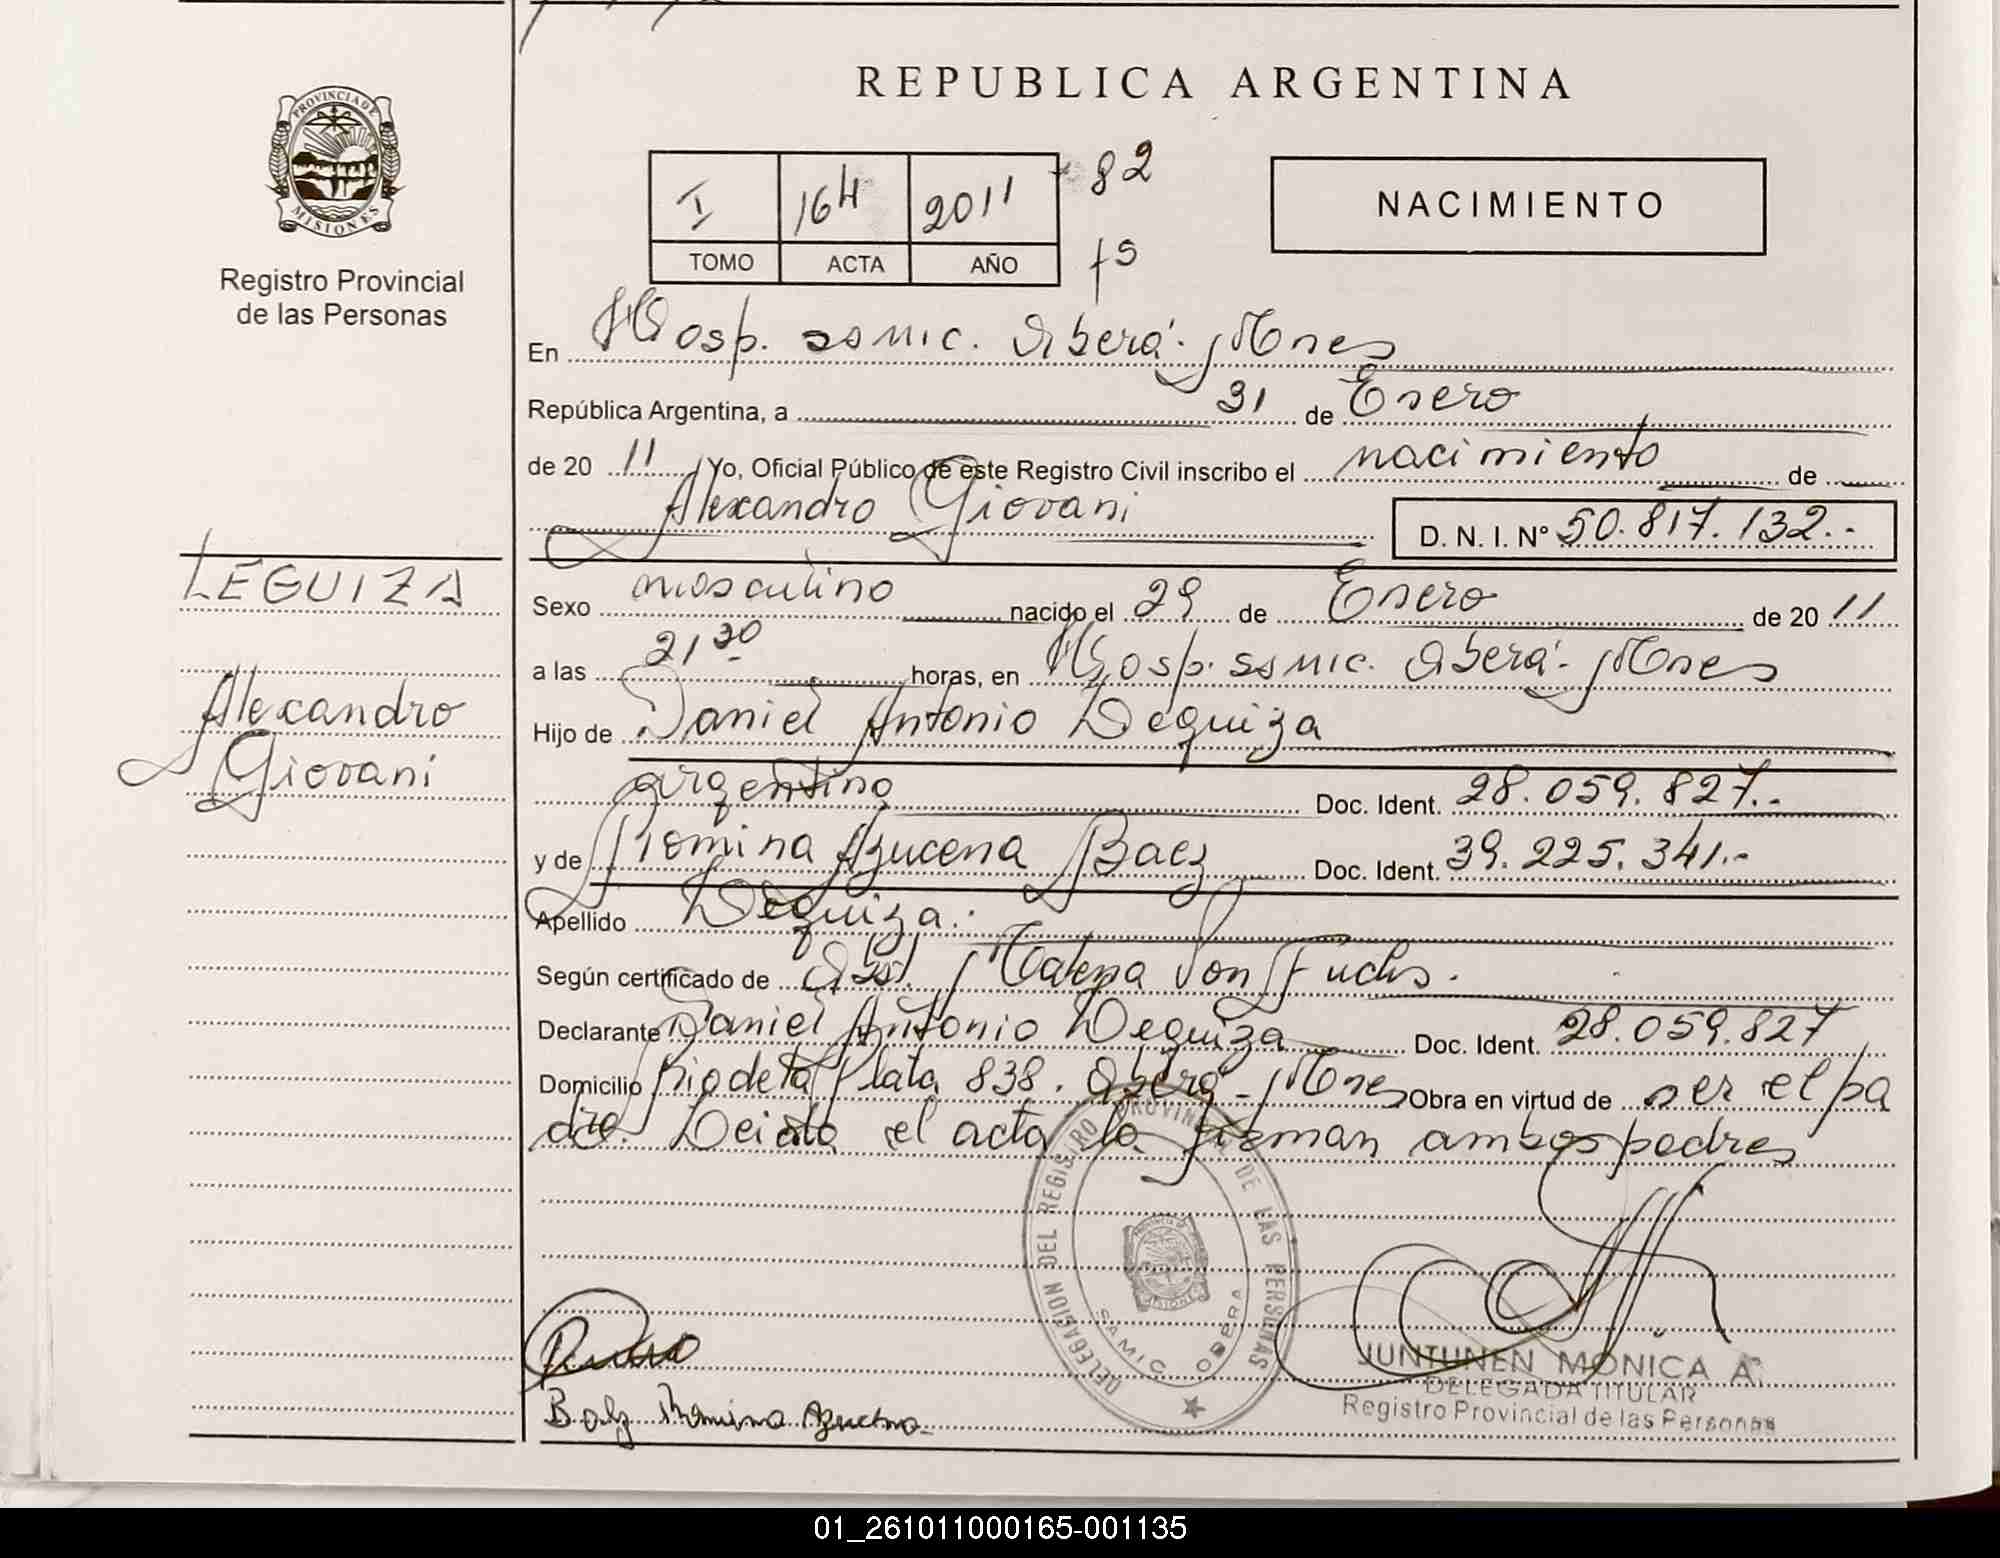 REPUBLICA ARGENTINA
PROVINCIA DE
MISIONES
Registro Provincial
de las Personas
I 164 2011 82
TOMO ACTA AÑO fs
NACIMIENTO
En Hosp. samic. Oberá. Mnes
República Argentina, a 31 de Enero
de 20 11 Yo, Oficial Público de este Registro Civil inscribo el nacimiento de
Alexandro Giovani D. N. I. Nº 50.817.132.-
LEGUIZA
Alexandro
Giovani
Sexo masculino nacido el 29 de Enero de 20 11
a las 21 30 horas, en Hosp. samic. Oberá. Mnes
Hijo de Daniel Antonio Leguiza
argentino Doc. Ident. 28.059.827.-
y de Romina Azucena Baez Doc. Ident. 39.225.341.-
Apellido Leguiza.
Según certificado de Obst. Malena Von Fuchs.
Declarante Daniel Antonio Leguiza Doc. Ident. 28.059.827
Domicilio Rio de la Plata 838. Oberá - Mnes Obra en virtud de ser el pa
dre. Leida el acta la firman ambos padres
DELEGACION DEL REGISTRO PROVINCIAL DE LAS PERSONAS
SAMIC OBERA
Baez Romina Azucena
JUNTUNEN MONICA A
DELEGADA TITULAR
Registro Provincial de las Personas
01_261011000165-001135